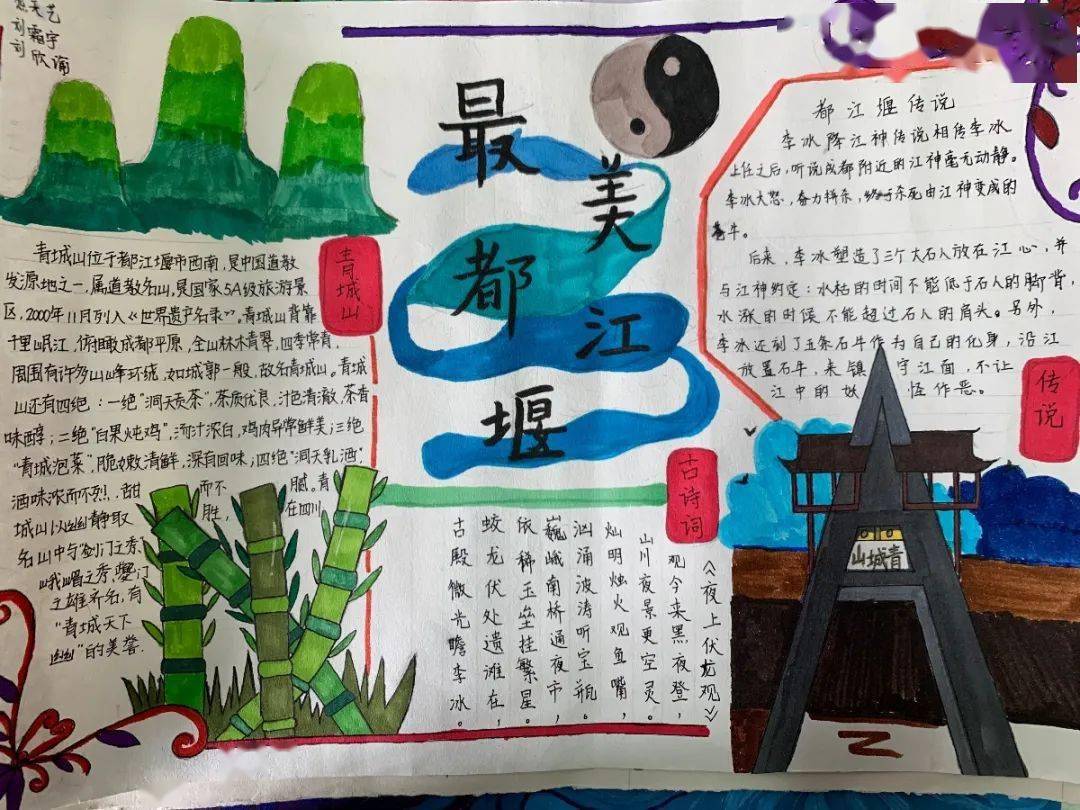 刘霜宇
刘欣
最美都江堰
青城山
青城山位于都江堰市西南，是中国道教
发源地之一，属道教名山，是国家5A级旅游景
区，2000年11月列入《世界遗产名录》。青城山背靠
千里岷江，俯瞰成都平原，全山林木青翠，四季常青，
周围有许多山峰环绕，如城郭一般，故名青城山。青城
山还有四绝：一绝"洞天贡茶"，茶质优良，汁色清澈，茶香
味醇；二绝"白果炖鸡"，汤汁浓白，鸡肉异常鲜美；三绝
"青城泡菜"，脆嫩清鲜，深有回味；四绝"洞天乳酒"，
酒味浓而不烈，甜而不腻。青
城山以幽静取胜，在四川
名山中与剑门之秀，
峨嵋之秀，夔门
之雄齐名，有
"青城天下
幽"的美誉.
都江堰传说
李冰降江神传说相传李冰
上任之后，听说成都附近的江神毫无动静。
李冰大怒，奋力拼杀，终于杀死由江神变成的
苍牛。
后来，李冰塑造了三个大石人放在江心，并
与江神约定：水枯的时间不能低于石人的脚背，
水涨的时候不能超过石人的肩头。另外，
李冰还刻了五条石牛作为自己的化身，沿江
放置石牛，来镇守江面，不让
江中的妖怪作恶。
传说
古诗词
《夜上伏龙观》
观今来黑夜登，
山川夜景更空灵。
灿明烛火观鱼嘴，
汹涌波涛听宝瓶。
巍峨南桥通夜市，
依稀玉垒挂繁星。
蛟龙伏处遗滩在，
古殿微光瞻李冰。
青城山